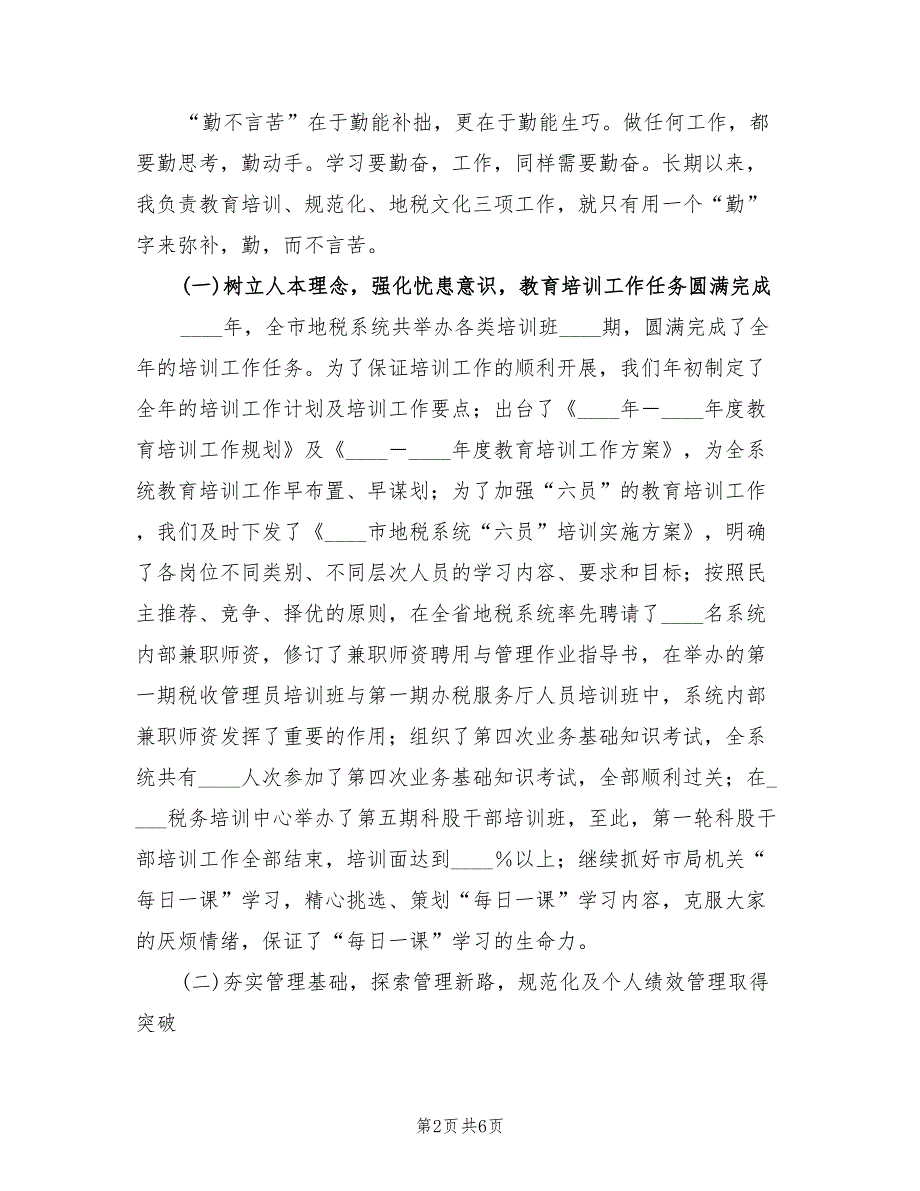 “勤不言苦”在于勤能补拙，更在于勤能生巧。做任何工作，都
要勤思考，勤动手。学习要勤奋，工作，同样需要勤奋。长期以来，
我负责教育培训、规范化、地税文化三项工作，就只有用一个“勤”
字来弥补，勤，而不言苦。
(一)树立人本理念，强化忧患意识，教育培训工作任务圆满完成
____年，全市地税系统共举办各类培训班____期，圆满完成了全
年的培训工作任务。为了保证培训工作的顺利开展，我们年初制定了
全年的培训工作计划及培训工作要点；出台了《____年－____年度教
育培训工作规划》及《____－____年度教育培训工作方案》，为全系
统教育培训工作早布置、早谋划；为了加强“六员”的教育培训工作
，我们及时下发了《____市地税系统“六员”培训实施方案》，明确
了各岗位不同类别、不同层次人员的学习内容、要求和目标；按照民
主推荐、竞争、择优的原则，在全省地税系统率先聘请了____名系统
内部兼职师资，修订了兼职师资聘用与管理作业指导书，在举办的第
一期税收管理员培训班与第一期办税服务厅人员培训班中，系统内部
兼职师资发挥了重要的作用；组织了第四次业务基础知识考试，全系
统共有____人次参加了第四次业务基础知识考试，全部顺利过关；在_
___税务培训中心举办了第五期科股干部培训班，至此，第一轮科股干
部培训工作全部结束，培训面达到____%以上；继续抓好市局机关“
每日一课”学习，精心挑选、策划“每日一课”学习内容，克服大家
的厌烦情绪，保证了“每日一课”学习的生命力。
(二)夯实管理基础，探索管理新路，规范化及个人绩效管理取得
突破
第2页 共6页